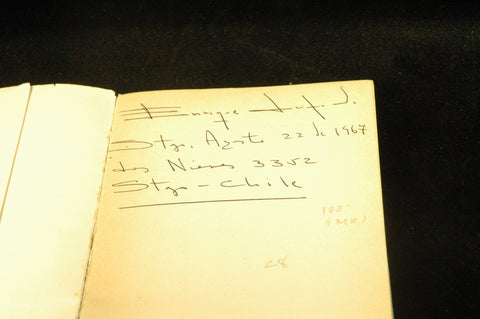 Enrique
Stgo. Agosto 22 de 1967
Los Nieves 3352
Stgo - Chile
100-
28